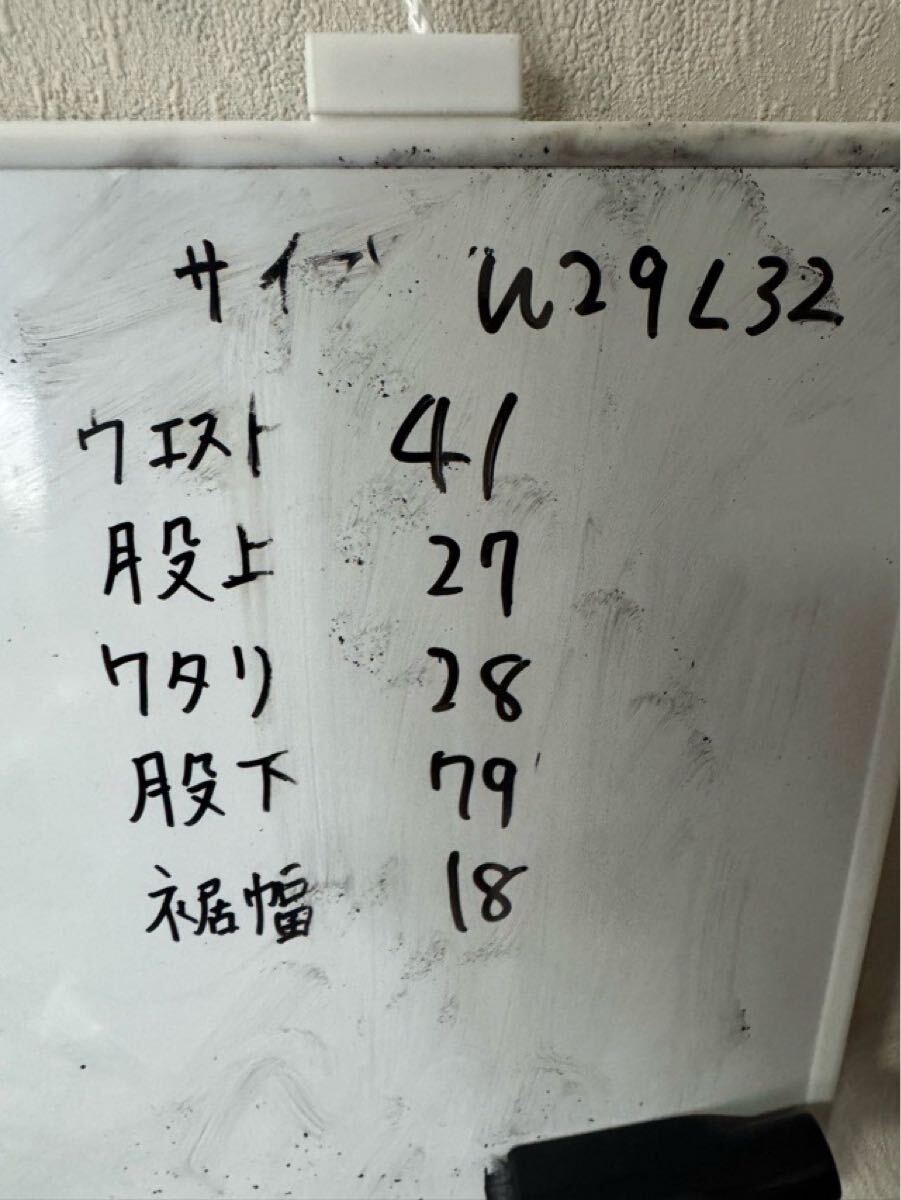 サイズ W29L32
ウエスト 41
股上 27
ワタリ 28
股下 79
裾幅 18